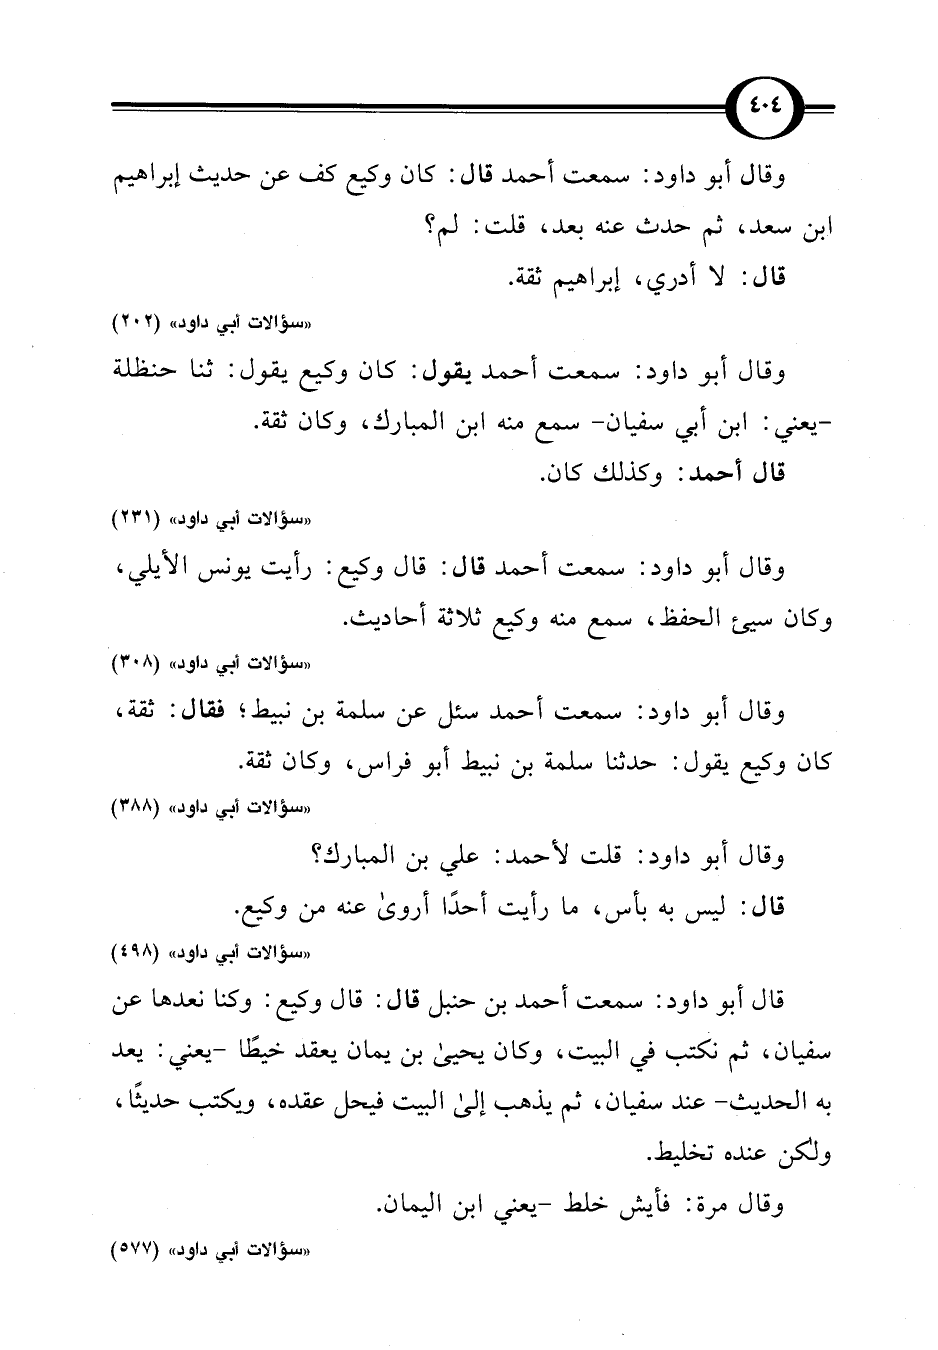 ٤٠٤
وقال أبو داود: سمعت أحمد قال: كان وكيع كف عن حديث إبراهيم
ابن سعد، ثم حدث عنه بعد، قلت: لم؟
قال: لا أدري، إبراهيم ثقة.
«سؤالات أبي داود» (٢٠٢)
وقال أبو داود: سمعت أحمد يقول: كان وكيع يقول: ثنا حنظلة
-يعني: ابن أبي سفيان- سمع منه ابن المبارك، وكان ثقة.
قال أحمد: وكذلك كان.
«سؤالات أبي داود» (٢٣١)
وقال أبو داود: سمعت أحمد قال: قال وكيع: رأيت يونس الأيلي،
وكان سيئ الحفظ، سمع منه وكيع ثلاثة أحاديث.
«سؤالات أبي داود» (٣٠٨)
وقال أبو داود: سمعت أحمد سئل عن سلمة بن نبيط؛ فقال: ثقة،
كان وكيع يقول: حدثنا سلمة بن نبيط أبو فراس، وكان ثقة.
«سؤالات أبي داود» (٣٨٨)
وقال أبو داود: قلت لأحمد: علي بن المبارك؟
قال: ليس به بأس، ما رأيت أحدًا أروىٰ عنه من وكيع.
«سؤالات أبي داود» (٤٩٨)
قال أبو داود: سمعت أحمد بن حنبل قال: قال وكيع: وكنا نعدها عن
سفيان، ثم نكتب في البيت، وكان يحيىٰ بن يمان يعقد خيطًا -يعني: يعد
به الحديث- عند سفيان، ثم يذهب إلىٰ البيت فيحل عقده، ويكتب حديثًا،
ولٰكن عنده تخليط.
وقال مرة: فأيش خلط -يعني ابن اليمان.
«سؤالات أبي داود» (٥٧٧)